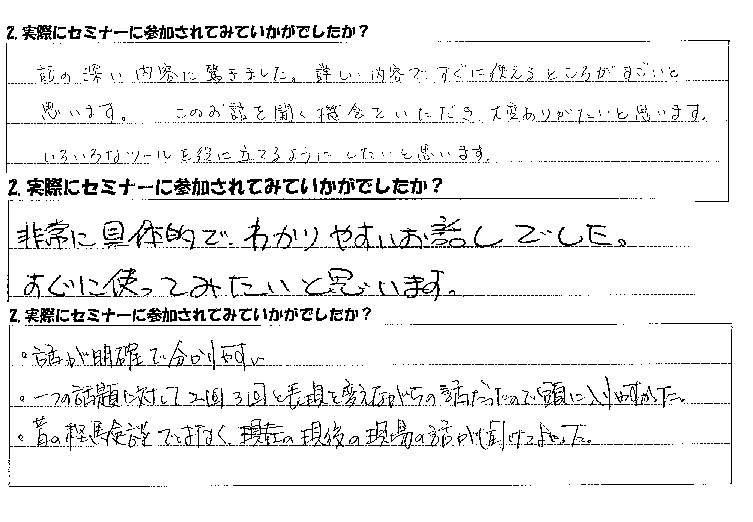 2.実際にセミナーに参加されてみていかがでしたか？
話の深い内容に驚きました。詳しい内容で、すぐに使えるところがすごいと
思います。 このお話を聞く機会をいただき 大変ありがたいと思います。
いろいろなツールを役に立てるようにしたいと思います。
2.実際にセミナーに参加されてみていかがでしたか？
非常に具体的で、わかりやすいお話しでした。
すぐに使ってみたいと思います。
2.実際にセミナーに参加されてみていかがでしたか？
・話が明確で分かり易い
・一つの話題に対して2回3回と表現を変えながらの話だったので頭に入り易かった。
・昔の経験談ではなく、現在の現役の現場の話が聞けてよかった。